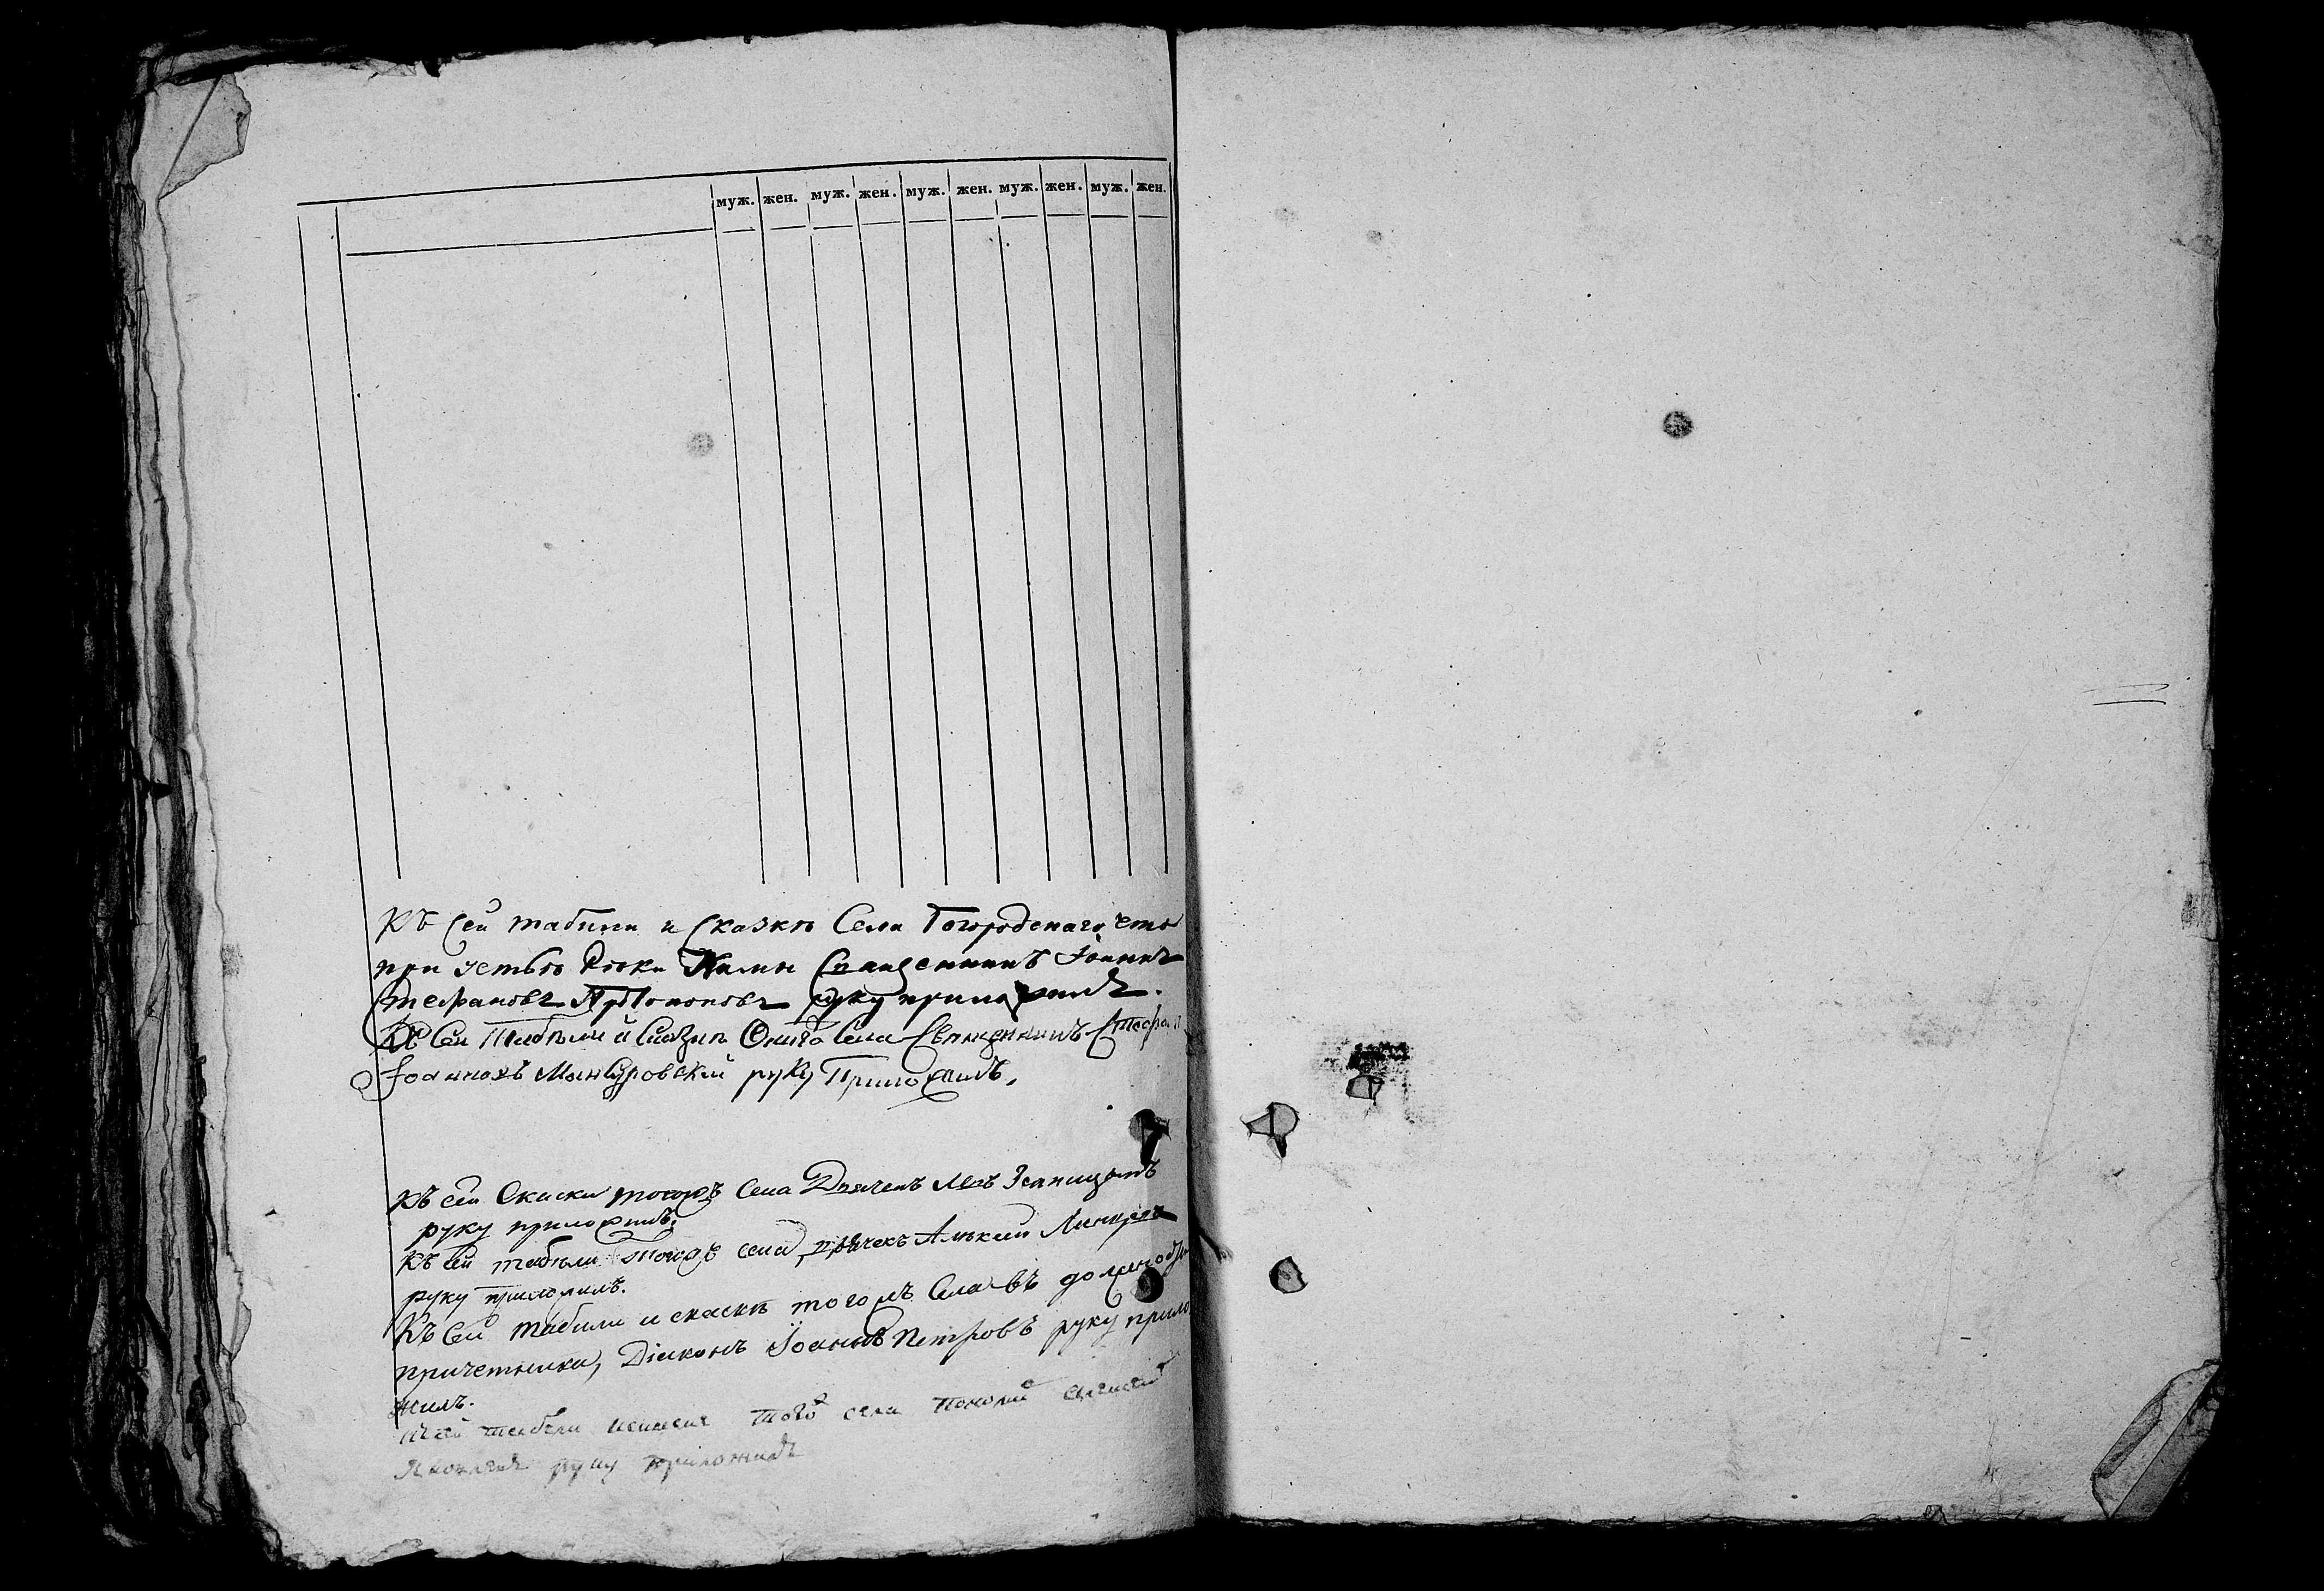 муж. жен. муж. жен. муж. жен. муж. жен. муж. жен.
Къ сей табели и сказкѣ Села Богородскаго что
при устьѣ Рѣки Камы Священникъ Іоаннъ
Стефановъ Протопоповъ руку приложилъ.
Къ Сей Табѣли и Сказкѣ Онаго Села Священникъ Стефанъ
Іоанновъ Мансуровскій руку Приложилъ,
къ сей Скаски тогожъ Села Дьячекъ Левъ
руку приложилъ.
Къ сей табѣли тогожъ села дьячекъ Алькей
руку приложилъ.
Къ Сей табели и скаскѣ тогожъ Села въ
причетника, Діаконъ Іоаннъ Петровъ руку прило
жилъ.
табели того села
Яковлевъ руку приложилъ